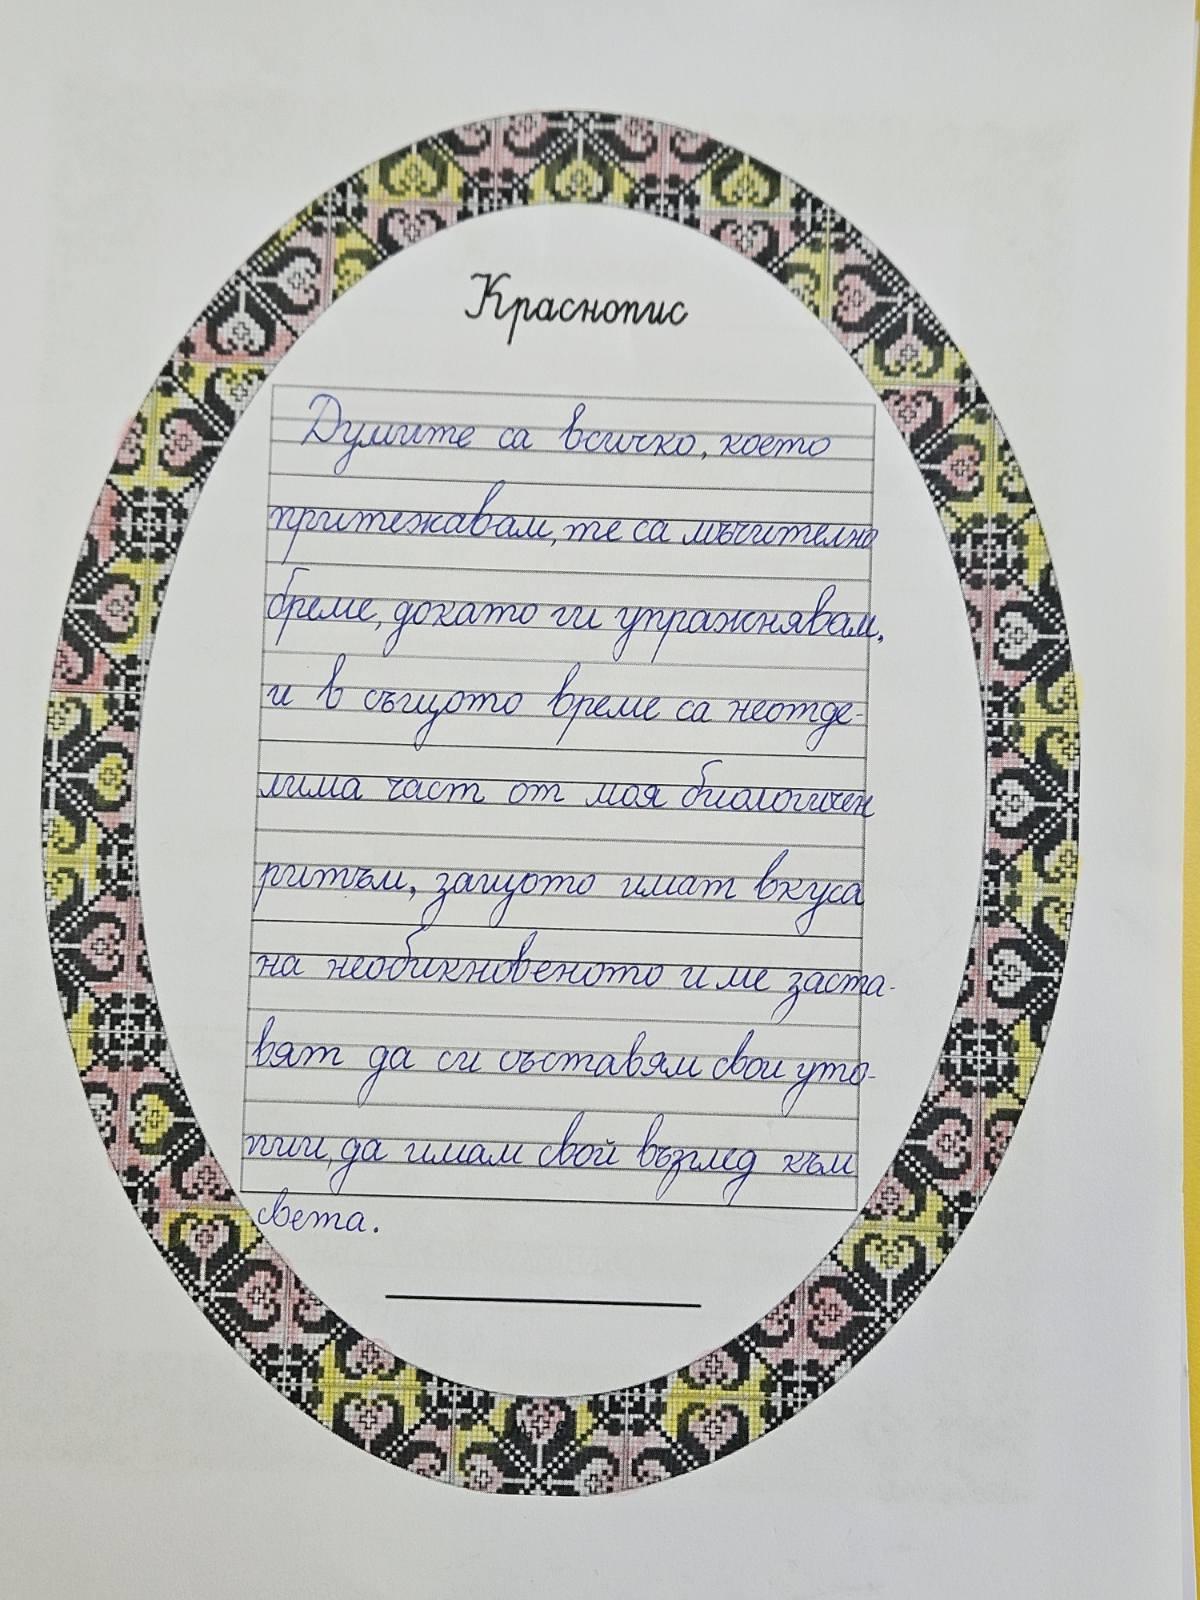 Краснопис
Думите са всичко, което
притежавам, те са мъчително
бреме, докато ги упражнявам,
и в същото време са неотде-
лима част от моя биологичен
ритъм, защото имат вкуса
на необикновеното и ме заста-
вят да си съставям свои уто-
пии, да имам свой възглед към
света.